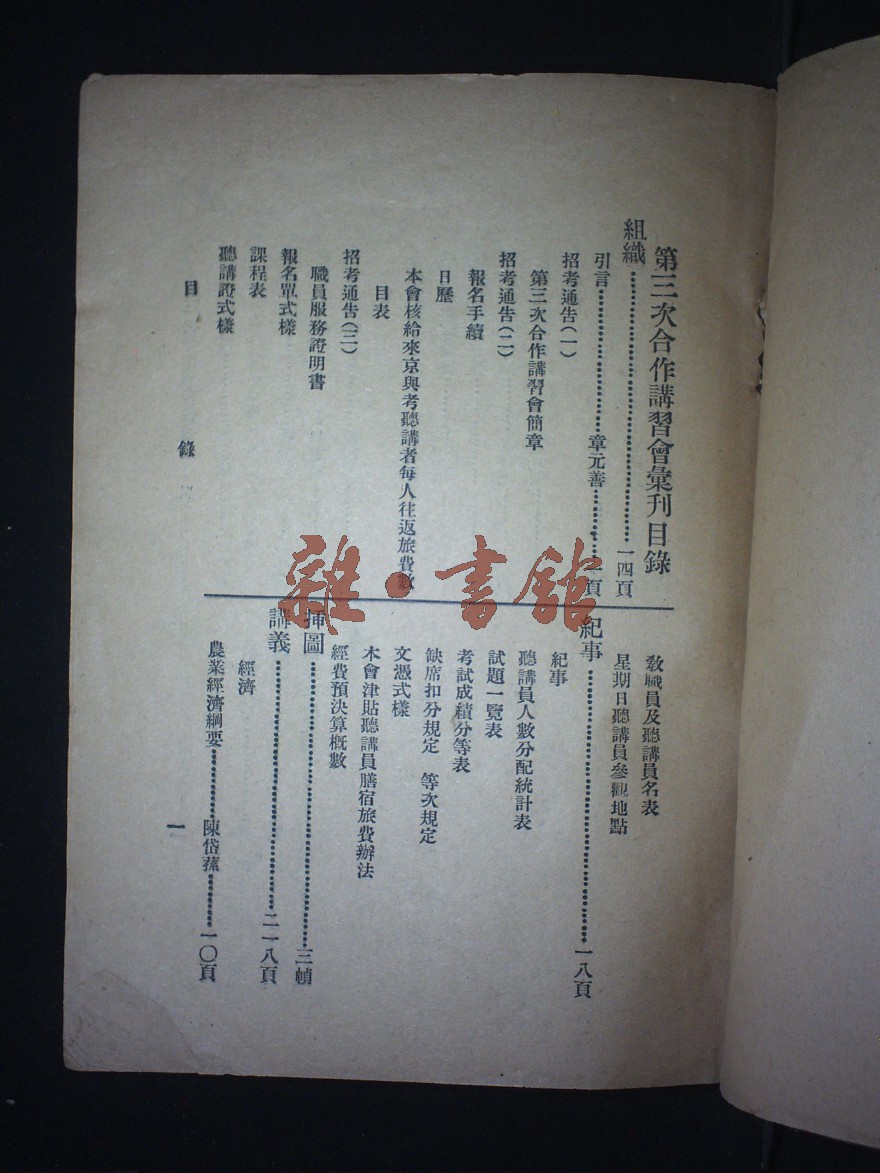 第三次合作講習會彙刊目錄
組織……一四頁
引言……章元善……一頁
招考通告(一)
第三次合作講習會簡章
招考通告(二)
報名手續
日歷
本會核給來京與考聽講者每人往返旅費數
目表
招考通告(三)
職員服務證明書
報名單式樣
課程表
聽講證式樣
教職員及聽講員名表
星期日聽講員參觀地點
紀事……一八頁
紀事
聽講員人數分配統計表
試題一覽表
考試成績分等表
缺席扣分規定 等次規定
文憑式樣
本會津貼聽講員膳宿旅費辦法
經費預決算概數
插圖……三幀
講義……二一八頁
經濟
農業經濟綱要……陳岱蓀……一〇頁
目錄
一
雜·書館